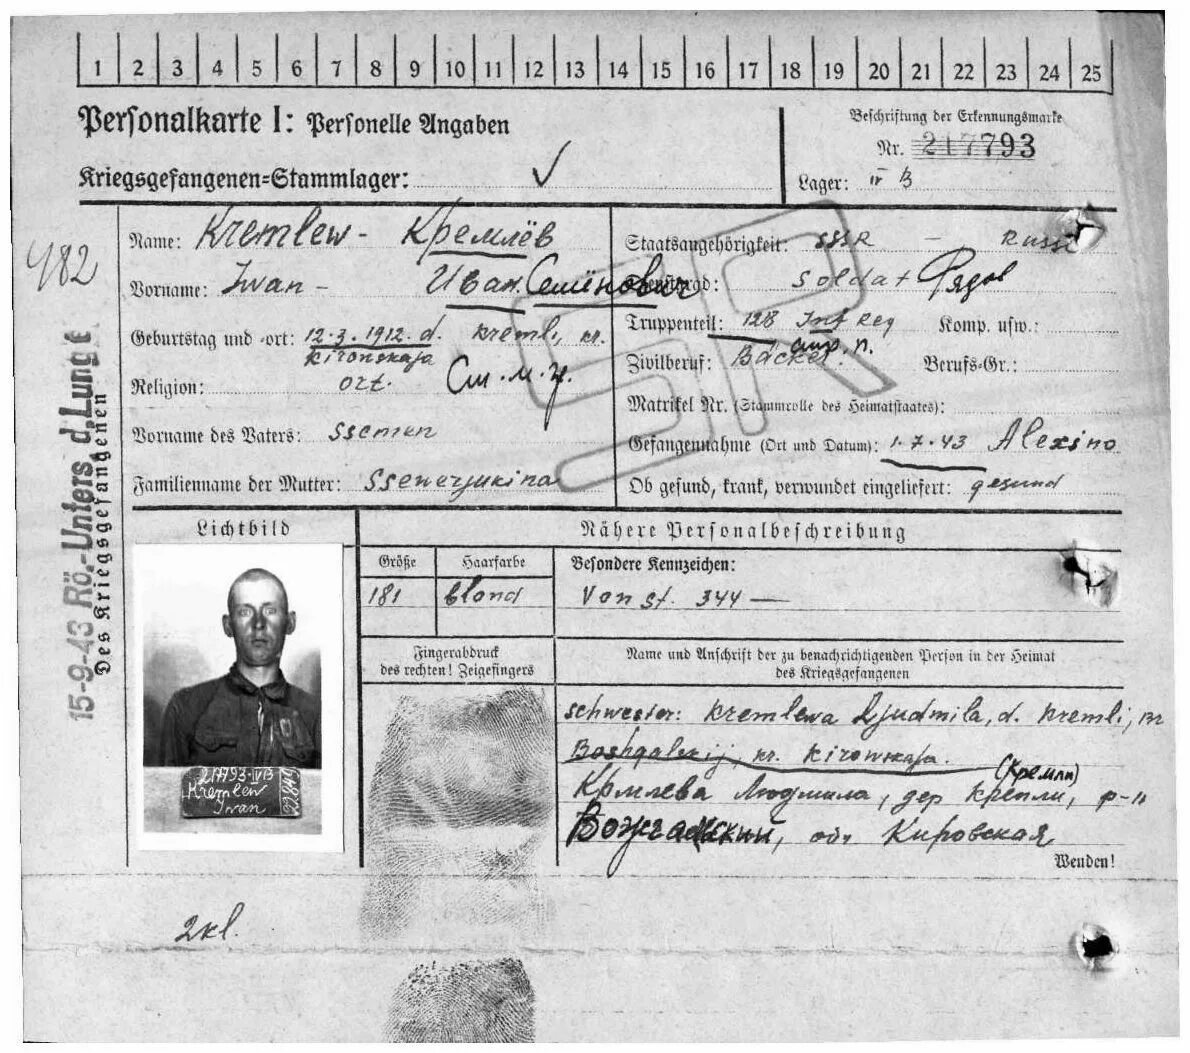 1 2 3 4 5 6 7 8 9 10 11 12 13 14 15 16 17 18 19 20 21 22 23 24 25
Personalkarte I: Personelle Angaben
Kriegsgefangenen=Stammlager:
Beschriftung der Erkennungsmarke
Nr. 217793
Lager: IV B
482
Name: Kremlew - Кремлёв
Vorname: Iwan - Иван Семёнович
Geburtstag und -ort: 12.3.1912. d. Kreml, kr.
Kironskaja
Religion: ort. См. м. у.
Vorname des Vaters: Ssemen
Familienname der Mutter:
Staatsangehörigkeit: SSSR - Russe
Dienstgrad: Soldat Рядов
Truppenteil: 128 Inf Reg Komp. usw.:
Zivilberuf: Bäcker. Berufs-Gr.:
Matrikel Nr. (Stammrolle des Heimatstaates):
Gefangennahme (Ort und Datum): 1.7.43 Alexino
Ob gesund, krank, verwundet eingeliefert: gesund
SR
15-9-43 Rö.-Unters d. Lunge
Des Kriegsgefangenen
Lichtbild
Nähere Personalbeschreibung
Größe Haarfarbe Besondere Kennzeichen:
181 blond Von St. 344 —
Fingerabdruck
des rechten! Zeigefingers
Name und Anschrift der zu benachrichtigenden Person in der Heimat
des Kriegsgefangenen
schwester: Kremlewa Ljudmila, d. Kremli,
Boshgalskij, kr. Kirowskaja.
(Кремли)
Крмлева Людмила, дер Крепли, р-н
Вожгальский, обл Кировская
Wenden!
217793-IVB
Kremlew
Iwan
2kl.